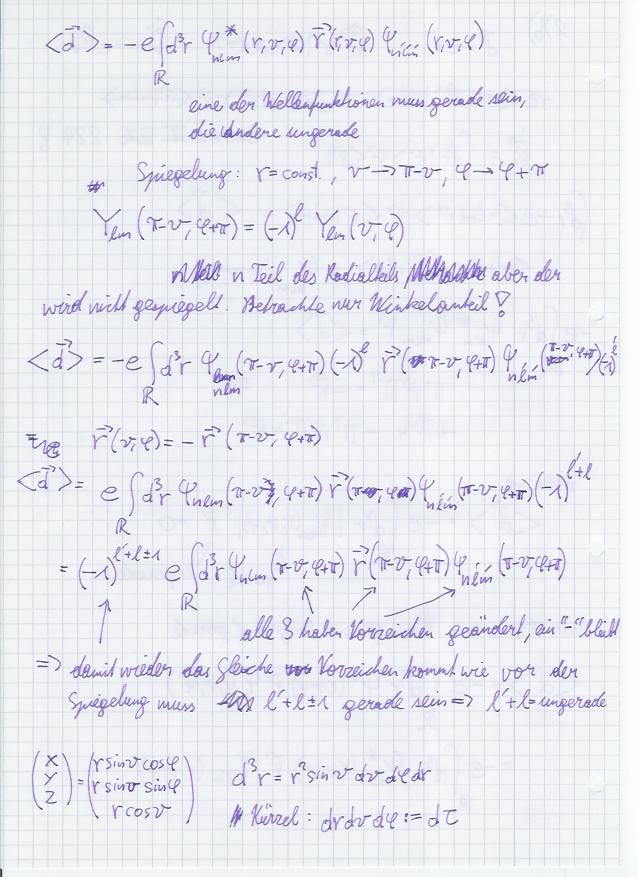 ⟨d⃗⟩ = -e ∫_ℝ d³r φ*_{nlm}(r,ν,φ) r⃗(r,ν,φ) φ_{n'l'm'}(r,ν,φ)
eine der Wellenfunktionen muss gerade sein,
die andere ungerade
Spiegelung: r=const., ν→π-ν, φ→φ+π
Y_{lm}(π-ν, φ+π) = (-1)^l Y_{lm}(ν,φ)
n Teil des Radialteils aber der
wird nicht gespiegelt. Betrachte nur Winkelanteil!
⟨d⃗⟩ = -e ∫_ℝ d³r φ_{nlm}(π-ν, φ+π)(-1)^l r⃗(π-ν, φ+π) φ_{n'l'm'}(π-ν, φ+π)(-1)^{l'}
r⃗(ν,φ) = -r⃗(π-ν, φ+π)
⟨d⃗⟩ = e ∫_ℝ d³r φ_{nlm}(π-ν, φ+π) r⃗(π-ν, φ+π) φ_{n'l'm'}(π-ν, φ+π)(-1)^{l'+l}
= (-1)^{l'+l±1} e ∫_ℝ d³r φ_{nlm}(π-ν, φ+π) r⃗(π-ν, φ+π) φ_{n'l'm'}(π-ν, φ+π)
alle 3 haben Vorzeichen geändert, ein "-" bleibt
=> damit wieder das Gleiche Vorzeichen kommt wie vor der
Spiegelung muss l'+l±1 gerade sein => l'+l = ungerade
(x y z) = (r sinν cosφ, r sinν sinφ, r cosν) d³r = r² sinν dν dφ dr
Kürzel: dr dν dφ := dτ